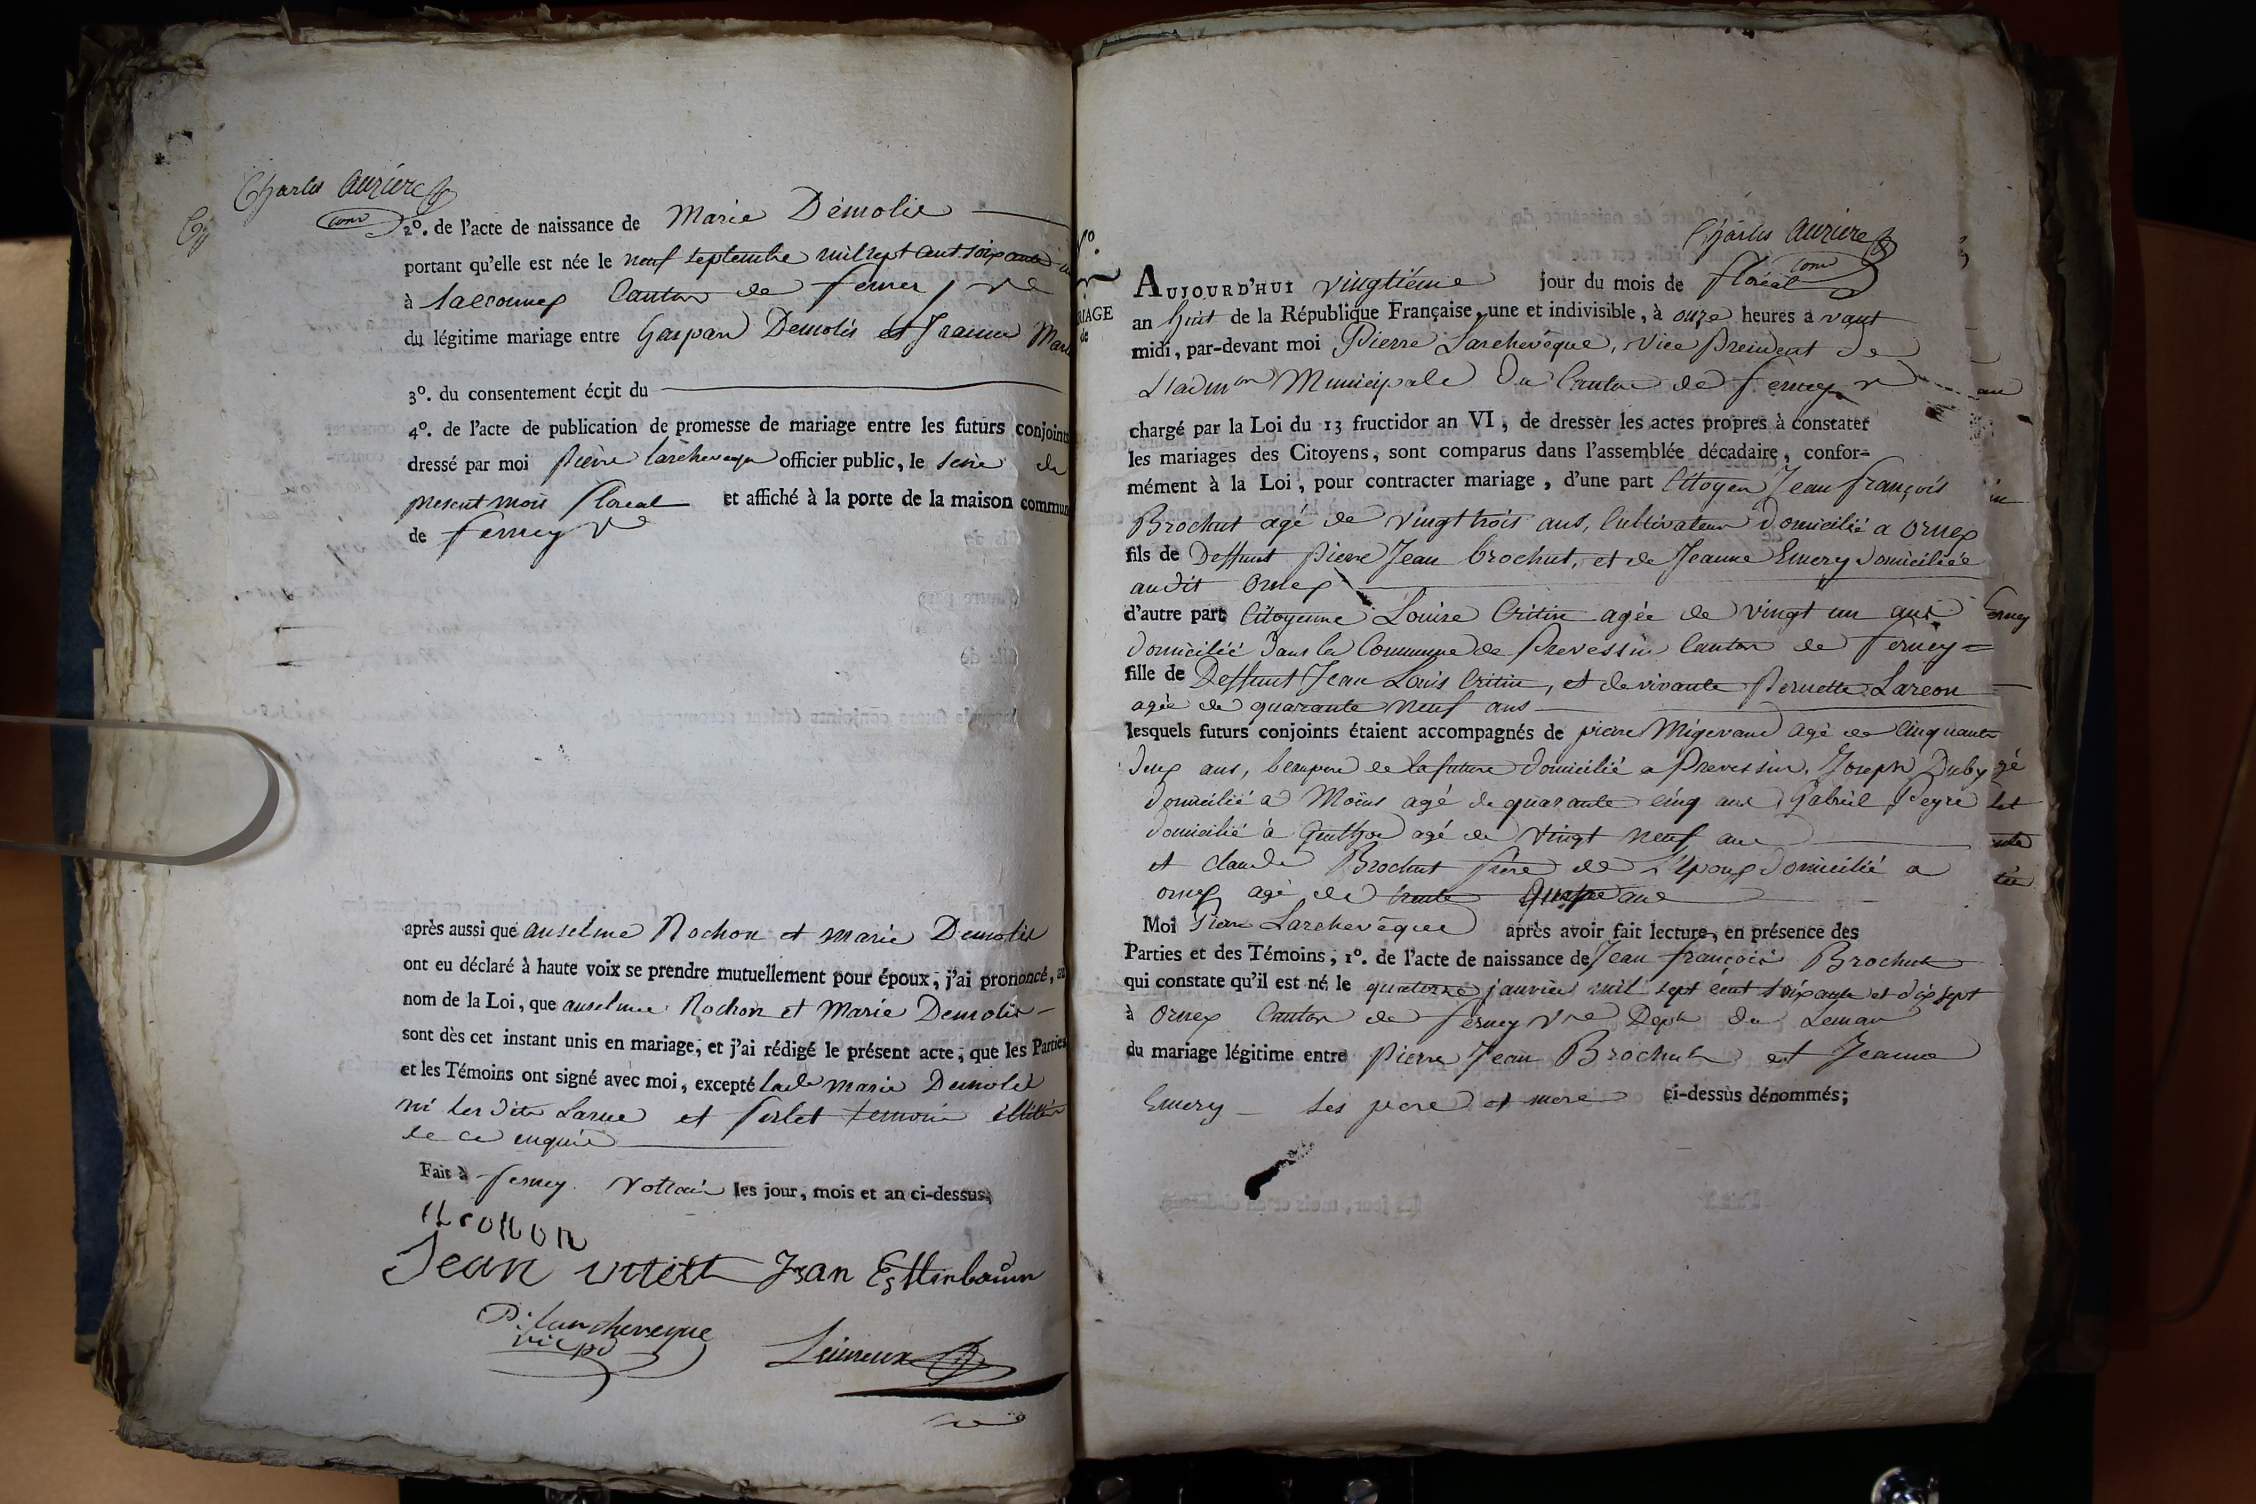 Charles Auziere
com
2º. de l'acte de naissance de Marie Démolis
portant qu'elle est née le neuf septembre mil sept cent soixante
à Sacconnex Canton de ferney
du légitime mariage entre Gaspar Demolis et Jeanne Marie
3º. du consentement écrit du
4º. de l'acte de publication de promesse de mariage entre les futurs conjoints
dressé par moi Pierre Larcheveque officier public, le seize de
present mois floreal et affiché à la porte de la maison commun
de ferney
après aussi que anselme Rochon et marie Demolis
ont eu déclaré à haute voix se prendre mutuellement pour époux, j'ai prononcé, au
nom de la Loi, que anselme Rochon et Marie Demolis
sont dès cet instant unis en mariage, et j'ai rédigé le présent acte, que les Parties
et les Témoins ont signé avec moi, excepté marie Demolis
ni les dits Larue et temoin
de ce enquis
Fait à ferney Voltaire les jour, mois et an ci-dessus,
Jean Jean
P: Larcheveque
vice pd
Nº
RIAGE
de
Charles Auziere
com
AUJOURD'HUI vingtiéme jour du mois de floreal
an huit de la République Française, une et indivisible, à onze heures avant
midi, par-devant moi Pierre Larchevêque, Vice President de
L'admon Municipale du Canton de ferney
chargé par la Loi du 13 fructidor an VI, de dresser les actes propres à constater
les mariages des Citoyens, sont comparus dans l'assemblée décadaire, confor-
mément à la Loi, pour contracter mariage, d'une part Citoyen Jean françois
Brochut agé de vingt trois ans, Cultivateur domicilié a Ornex
fils de Deffunt Pierre Jean brochut, et de Jeanne Emery domiciliée
audit Ornex
d'autre part Citoyenne Louise Critin agée de vingt un ans
domicilié dans la Commune de Prevessin Canton de ferney
fille de Deffunt Jean Louis Critin, et de vivante Pernette Lareon
agée de quarante neuf ans
lesquels futurs conjoints étaient accompagnés de pierre Migevand agé de Cinquante
deux ans, beaupere de la future domicilié a Prevessin, Joseph Duby
domicilié a Moëns agé de quarante cinq ans, Gabriel Peyre
domicilié à agé de vingt neuf ans
et claude Brochut frère de l'Epoux domicilié a
ornex agé de trente quatre ans
Moi Pierre Larchevêque après avoir fait lecture, en présence des
Parties et des Témoins, 1º. de l'acte de naissance de Jean françois Brochut
qui constate qu'il est né le quatorze janvier mil sept cent soixante et dix sept
à Ornex Canton de ferney Vre Dept du Leman
du mariage légitime entre Pierre Jean Brochut et Jeanne
Emery ses pere et mere ci-dessus dénommés;